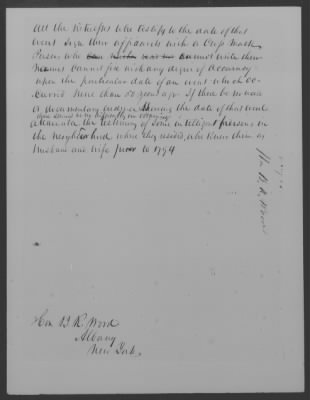 All the witnesses who testify to the date of that
event sign their affidavits with a Cross Mark.
Persons who cannot write their
Names cannot fix with any degree of accuracy
upon the particular date of an event which oc-
curred more than 50 years ago. If there be no near
or documentary evidence showing the date of that event
the testimony of some intelligent persons in
the neighborhood where they resided, who knew them as
husband and wife prior to 1794
Hon B. R. Wood
Hon. B. R. Wood
Albany
New York.